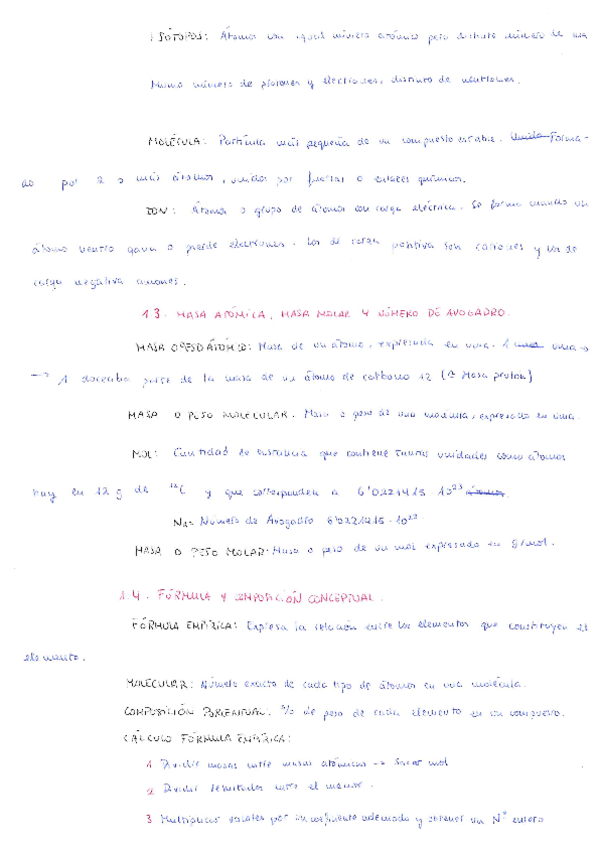 ISÓTOPOS: Átomos con igual número atómico pero distinto número de masa
Mismo número de protones y electrones, distinto de neutrones.
MOLÉCULA: Partícula más pequeña de un compuesto estable. Unida Forma-
do por 2 o más átomos, unidos por fuerzas o enlaces químicos.
ION: Átomo o grupo de átomos con carga eléctrica. Se forma cuando un
átomo neutro gana o pierde electrones. Los de carga positiva son cationes y los de
carga negativa aniones.
1.3. MASA ATÓMICA, MASA MOLAR Y NÚMERO DE AVOGADRO.
MASA O PESO ATÓMICO: Masa de un átomo, expresada en uma. 1 uma →
→ 1 doceaba parte de la masa de un átomo de carbono 12 (Masa protón)
MASA O PESO MOLECULAR. Masa o peso de una molécula, expresado en uma.
MOL: Cantidad de sustancia que contiene tantas unidades como átomos
hay en 12 g de ¹²C y que corresponden a 6'0221415 · 10²³ átomos.
Na= Número de Avogadro 6'0221415 · 10²³
MASA O PESO MOLAR: Masa o peso de un mol expresado en g/mol.
1.4. FÓRMULA Y COMPOSICIÓN CONCEPTUAL.
FÓRMULA EMPÍRICA: Expresa la relación entre los elementos que constituyen el
elemento.
MOLECULAR: Número exacto de cada tipo de átomos en una molécula.
COMPOSICIÓN PORCENTUAL: % de peso de cada elemento en un compuesto.
CÁLCULO FÓRMULA EMPÍRICA:
1 Dividir masas entre masas atómicas → Sacar mol
2 Dividir resultados entre el menor.
3 Multiplicar por un coeficiente adecuado y obtener un Nº entero